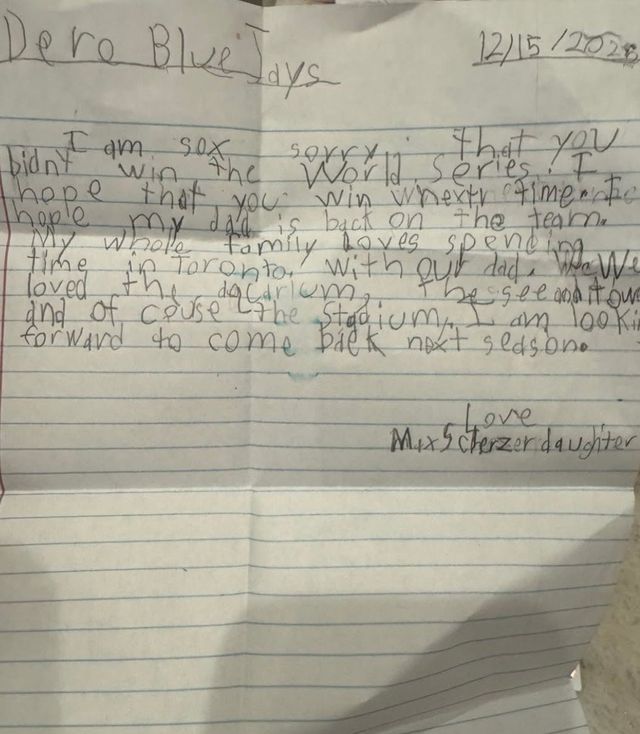 Dero Blue Jays
12/15/2025
I am sox sorry that you
bidnt win the World series. I
hope that you win whextr time. I
hople my dad is back on the team.
My whole family loves spending
time in Toronto. with our dad. We
loved the aqcarium, the seeanditow
and of couse the stadium. I am looki
forward to come back next season.
Love
Max Scherzer daughter